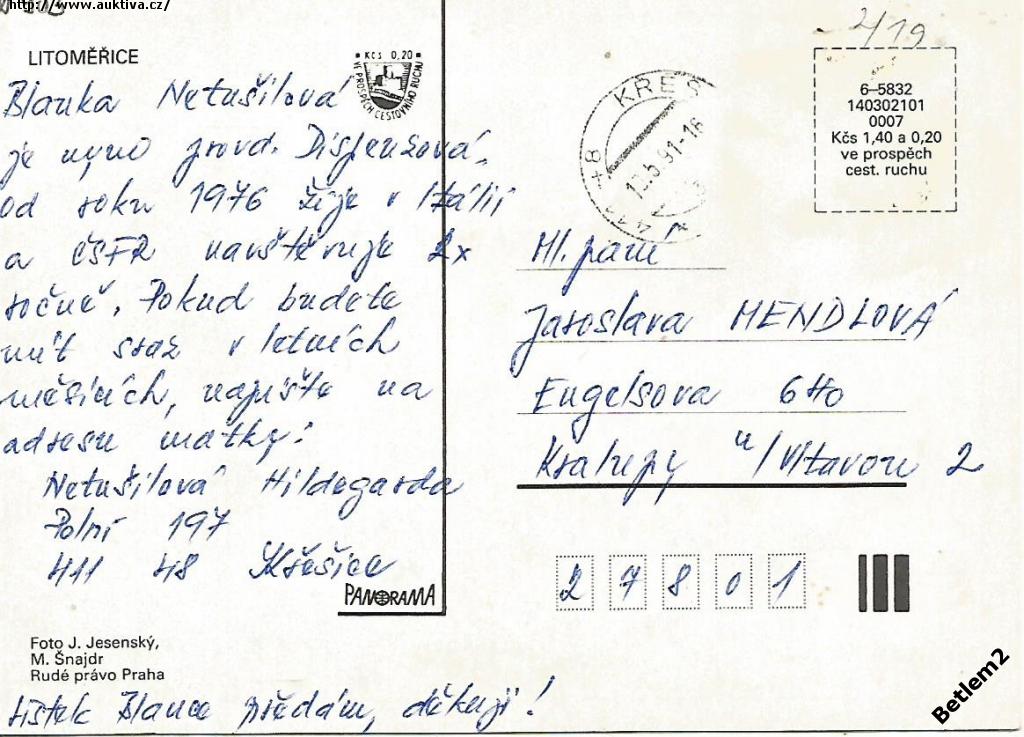 http://www.auktiva.cz/
LITOMĚŘICE
Kčs 0,20
VE PROSPĚCH CESTOVNÍHO RUCHU
Blanka Netušilová
je nyní provd.
od roku 1976 žije v Itálii
a ČSFR navštěvuje 2x
ročně. Pokud budete
mít sraz v letních
měsících, napište na
adresu matky:
Netušilová Hildegarda
Polní 197
411 48 Křešice
PANORAMA
Foto J. Jesenský,
M. Šnajdr
Rudé právo Praha
Lístek Blance předám, děkuji!
419
6–5832
140302101
0007
Kčs 1,40 a 0,20
ve prospěch
cest. ruchu
KŘEŠ
91-16
411 48
Ml. paní
Jaroslava MENDLOVÁ
Engelsova
Kralupy n/Vltavou 2
27801
Betlem2